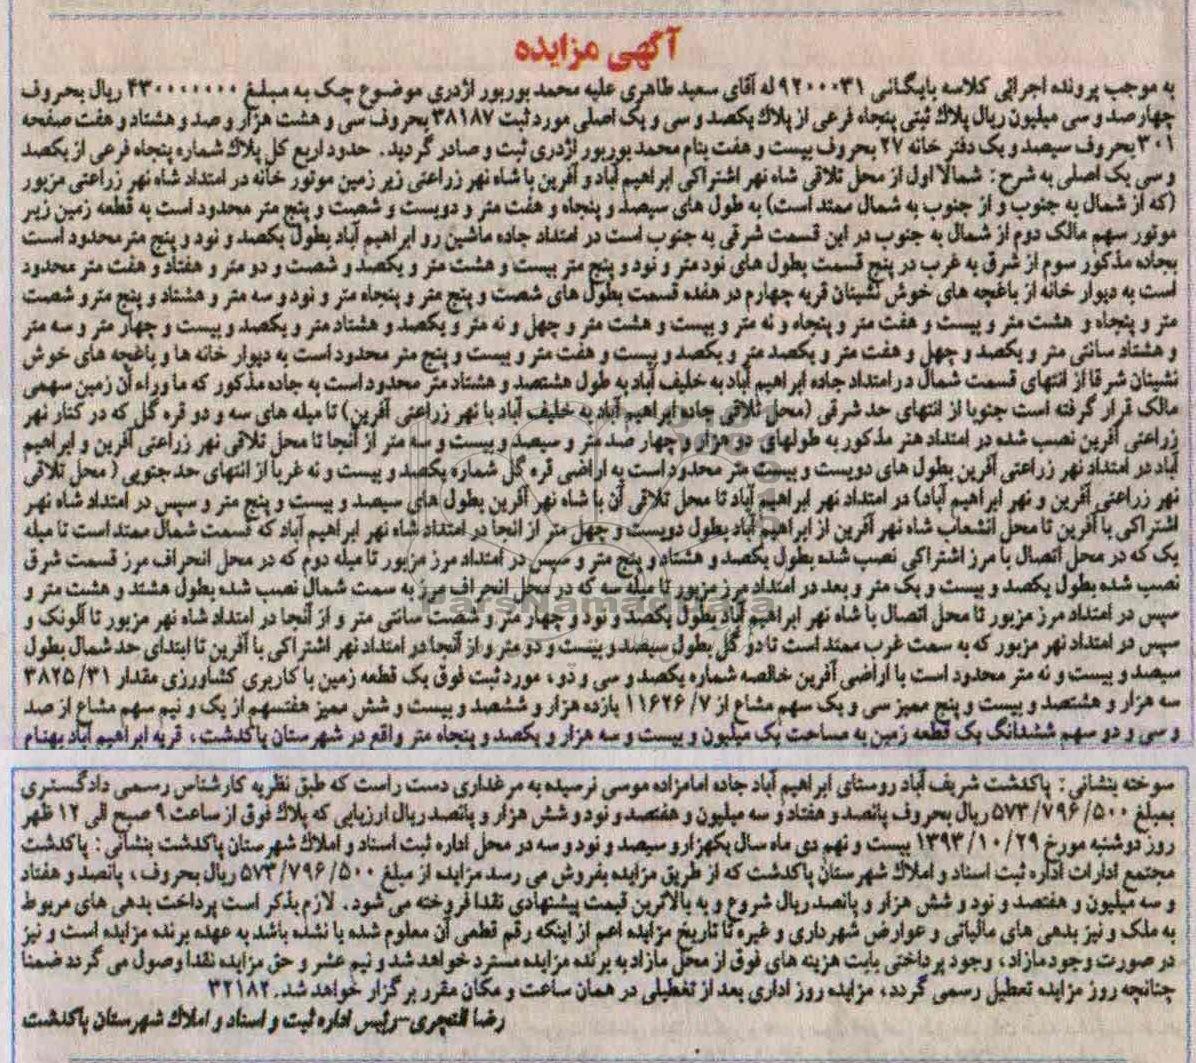 آگهی مزایده
به موجب پرونده اجرائی کلاسه بایگانی ۹۲۰۰۰۳۱ له آقای سعید طاهری علیه محمد بوربور اژدری موضوع چک به مبلغ ۴۳۰۰۰۰۰۰۰ ریال بحروف
چهارصد و سی میلیون ریال پلاک ثبتی پنجاه فرعی از پلاک یکصد و سی و یک اصلی مورد ثبت ۳۸۱۸۷ بحروف سی و هشت هزار و صد و هشتاد و هفت صفحه
۳۰۱ بحروف سیصد و یک دفتر خانه ۲۷ بحروف بیست و هفت بنام محمد بوربور اژدری ثبت و صادر گردید. حدود اربع کل پلاک شماره پنجاه فرعی از یکصد
و سی یک اصلی به شرح: شمالا اول از محل تلاقی شاه نهر اشتراکی ابراهیم آباد و آفرین با شاه نهر زراعتی زیر زمین موتور خانه در امتداد شاه نهر زراعتی مزبور
(که از شمال به جنوب و از جنوب به شمال ممتد است) به طول های سیصد و پنجاه و هفت متر و دویست و شصت و پنج متر محدود است به قطعه زمین زیر
موتور سهم مالک دوم از شمال به جنوب در این قسمت شرقی به جنوب است در امتداد جاده ماشین رو ابراهیم آباد بطول یکصد و نود و پنج متر محدود است
بجاده مذکور سوم از شرق به غرب در پنج قسمت بطول های نود متر و نود و پنج متر بیست و هشت متر و یکصد و شصت و دو متر و هفتاد و هفت متر محدود
است به دیوار خانه از باغچه های خوش نشینان قریه چهارم در هفده قسمت بطول های شصت و پنج متر و پنجاه متر و نود و سه متر و هشتاد و پنج متر و شصت
متر و پنجاه و هشت متر و بیست و هفت متر و پنجاه و نه متر و بیست و هشت متر و چهل و نه متر و یکصد و هشتاد متر و یکصد و بیست و چهار متر و سه متر
و هشتاد سانتی متر و یکصد و چهل و هفت متر و یکصد متر و یکصد و بیست و هفت متر و بیست و پنج متر محدود است به دیوار خانه ها و باغچه های خوش
نشینان شرقا از انتهای قسمت شمال در امتداد جاده ابراهیم آباد به خلیف آباد به طول هشتصد و هشتاد متر محدود است به جاده مذکور که ما وراء آن زمین سهمی
مالک قرار گرفته است جنوبا از انتهای حد شرقی (محل تلاقی جاده ابراهیم آباد به خلیف آباد با نهر زراعتی آفرین) تا میله های سه و دو قره گل که در کنار نهر
زراعتی آفرین نصب شده در امتداد هنر مذکور به طولهای دو هزار و چهار صد متر و سیصد و بیست و سه متر از آنجا تا محل تلاقی نهر زراعتی آفرین و ابراهیم
آباد در امتداد نهر زراعتی آفرین بطول های دویست و بیست متر محدود است به اراضی قره گل شماره یکصد و بیست و نه غربا از انتهای حد جنوبی ( محل تلاقی
نهر زراعتی آفرین و نهر ابراهیم آباد) در امتداد نهر ابراهیم آباد تا محل تلاقی آن با شاه نهر آفرین بطول های سیصد و بیست و پنج متر و سپس در امتداد شاه نهر
اشتراکی با آفرین تا محل انشعاب شاه نهر آفرین از ابراهیم آباد بطول دویست و چهل متر از انجا در امتداد شاه نهر ابراهیم آباد که قسمت شمال ممتد است تا میله
یک که در محل اتصال با مرز اشتراکی نصب شده بطول یکصد و هشتاد و پنج متر و سپس در امتداد مرز مزبور تا میله دوم که در محل انحراف مرز قسمت شرق
نصب شده بطول یکصد و بیست و یک متر و بعد در امتداد مرز مزبور تا میله سه که در محل انحراف مرز به سمت شمال نصب شده بطول هشتد و هشت متر و
سپس در امتداد مرز مزبور تا محل اتصال با شاه نهر ابراهیم آباد بطول یکصد و نود و چهار متر و شصت سانتی متر و از آنجا در امتداد شاه نهر مزبور تا آلونک و
سپس در امتداد نهر مزبور که به سمت غرب ممتد است تا دو گل بطول سیصد و بیست و دو متر و از آنجا در امتداد نهر اشتراکی با آفرین تا ابتدای حد شمال بطول
سیصد و بیست و نه متر محدود است با اراضی آفرین خالصه شماره یکصد و سی و دو، مورد ثبت فوق یک قطعه زمین با کاربری کشاورزی مقدار ۳۸۲۵/۳۱
سه هزار و هشتصد و بیست و پنج ممیز سی و یک سهم مشاع از ۱۱۶۲۶/۷ یازده هزار و ششصد و بیست و شش ممیز هفتسهم از یک و نیم سهم مشاع از صد
و سی و دو سهم ششدانگ یک قطعه زمین به مساحت یک میلیون و بیست و سه هزار و یکصد و پنجاه متر واقع در شهرستان پاکدشت، قریه ابراهیم آباد بهنام
سوخته بنشانی: پاکدشت شریف آباد روستای ابراهیم آباد جاده امامزاده موسی نرسیده به مرغداری دست راست که طبق نظریه کارشناس رسمی دادگستری
بمبلغ ۵۷۳/۷۹۶/۵۰۰ ریال بحروف پانصد و هفتاد و سه میلیون و هفتصد و نود و شش هزار و پانصد ریال ارزیابی که پلاک فوق از ساعت ۹ صبح الی ۱۲ ظهر
روز دوشنبه مورخ ۱۳۹۳/۱۰/۲۹ بیست و نهم دی ماه سال یکهزار و سیصد و نود و سه در محل اداره ثبت اسناد و املاک شهرستان پاکدشت بنشانی: پاکدشت
مجتمع ادارات اداره ثبت اسناد و املاک شهرستان پاکدشت که از طریق مزایده بفروش می رسد مزایده از مبلغ ۵۷۳/۷۹۶/۵۰۰ ریال بحروف، پانصد و هفتاد
و سه میلیون و هفتصد و نود و شش هزار و پانصد ریال شروع و به بالاترین قیمت پیشنهادی نقدا فروخته می شود. لازم بذکر است پرداخت بدهی های مربوط
به ملک و نیز بدهی های مالیاتی و عوارض شهرداری و غیره تا تاریخ مزایده اعم از اینکه رقم قطعی آن معلوم شده یا نشده باشد به عهده برنده مزایده است و نیز
در صورت وجود مازاد، وجوه پرداختی بابت هزینه های فوق از محل مازاد به برنده مزایده مسترد خواهد شد و نیم عشر و حق مزایده نقدا وصول می گردد ضمنا
چنانچه روز مزایده تعطیل رسمی گردد، مزایده روز اداری بعد از تعطیلی در همان ساعت و مکان مقرر برگزار خواهد شد. ۳۲۱۸۲
رضا التجری-رئیس اداره ثبت و اسناد و املاک شهرستان پاکدشت
ParsNamadData